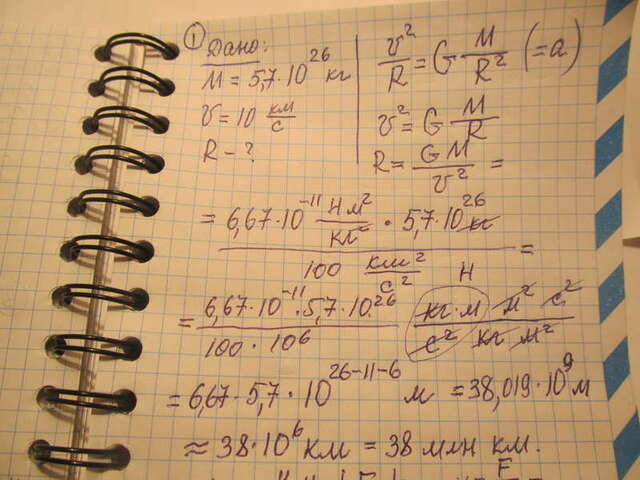 ① Дано:
M = 5,7·10²⁶ кг
v = 10 км/с
R – ?
v²/R = G M/R² (= a)
v² = G M/R
R = GM/v² =
= 6,67·10⁻¹¹ Нм²/кг² · 5,7·10²⁶ кг / 100 км²/с² =
= 6,67·10⁻¹¹·5,7·10²⁶ / 100·10⁶ Н кг·м м² с² / с² кг м²
= 6,67·5,7·10²⁶⁻¹¹⁻⁶ м = 38,019·10⁹ м
≈ 38·10⁶ км = 38 млн км.